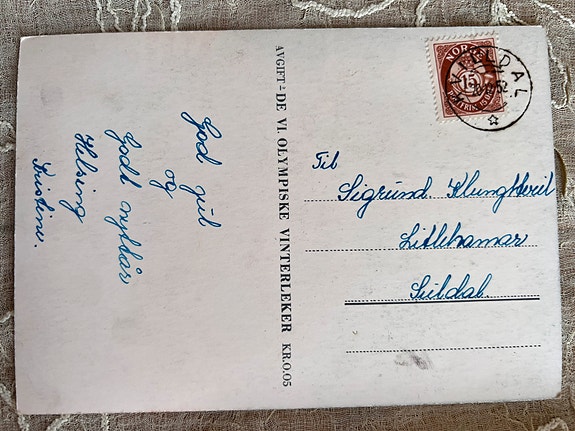 God jul
og
Godt nyttår
Helsing
Kristine.
AVGIFT - DE VI. OLYMPISKE VINTERLEKER KR.0.05
NORGE
15
Til
Sigrund Klungtveit
Litlehamar
Suldal.